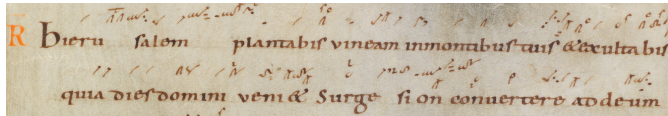 R hierusalem plantabis vineam inmontibus tuis & exultabis
quia dies domini veni& Surge sion convertere addeum